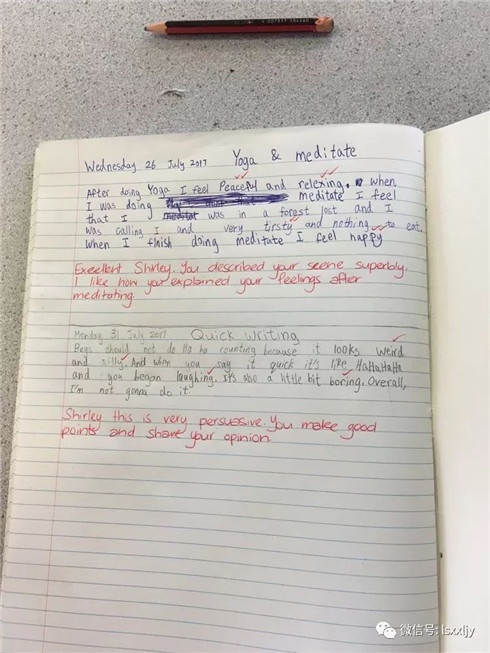 Wednesday 26 July 2017 Yoga & meditate
After doing Yoga I feel Peaceful and relexing. when
I was doing meditate I feel
that I was in a forest lost and I
was calling I and very tirsty and nothing to eat.
when I finish doing meditate I feel happy
Excellent Shirley. You described your scene superbly.
I like how you explained your feelings after
meditating.
Monday 31 July 2017 Quick Writing
Boys should not do Ha ha counting because it looks weird
and silly. And when you say it quick it's like HaHaHaHa
and you began laughing. It's also a little bit boring. Overall,
I'm not gonna do it.
Shirley this is very persuasive. You make good
points and share your opinion.
微信号: lsxxljy